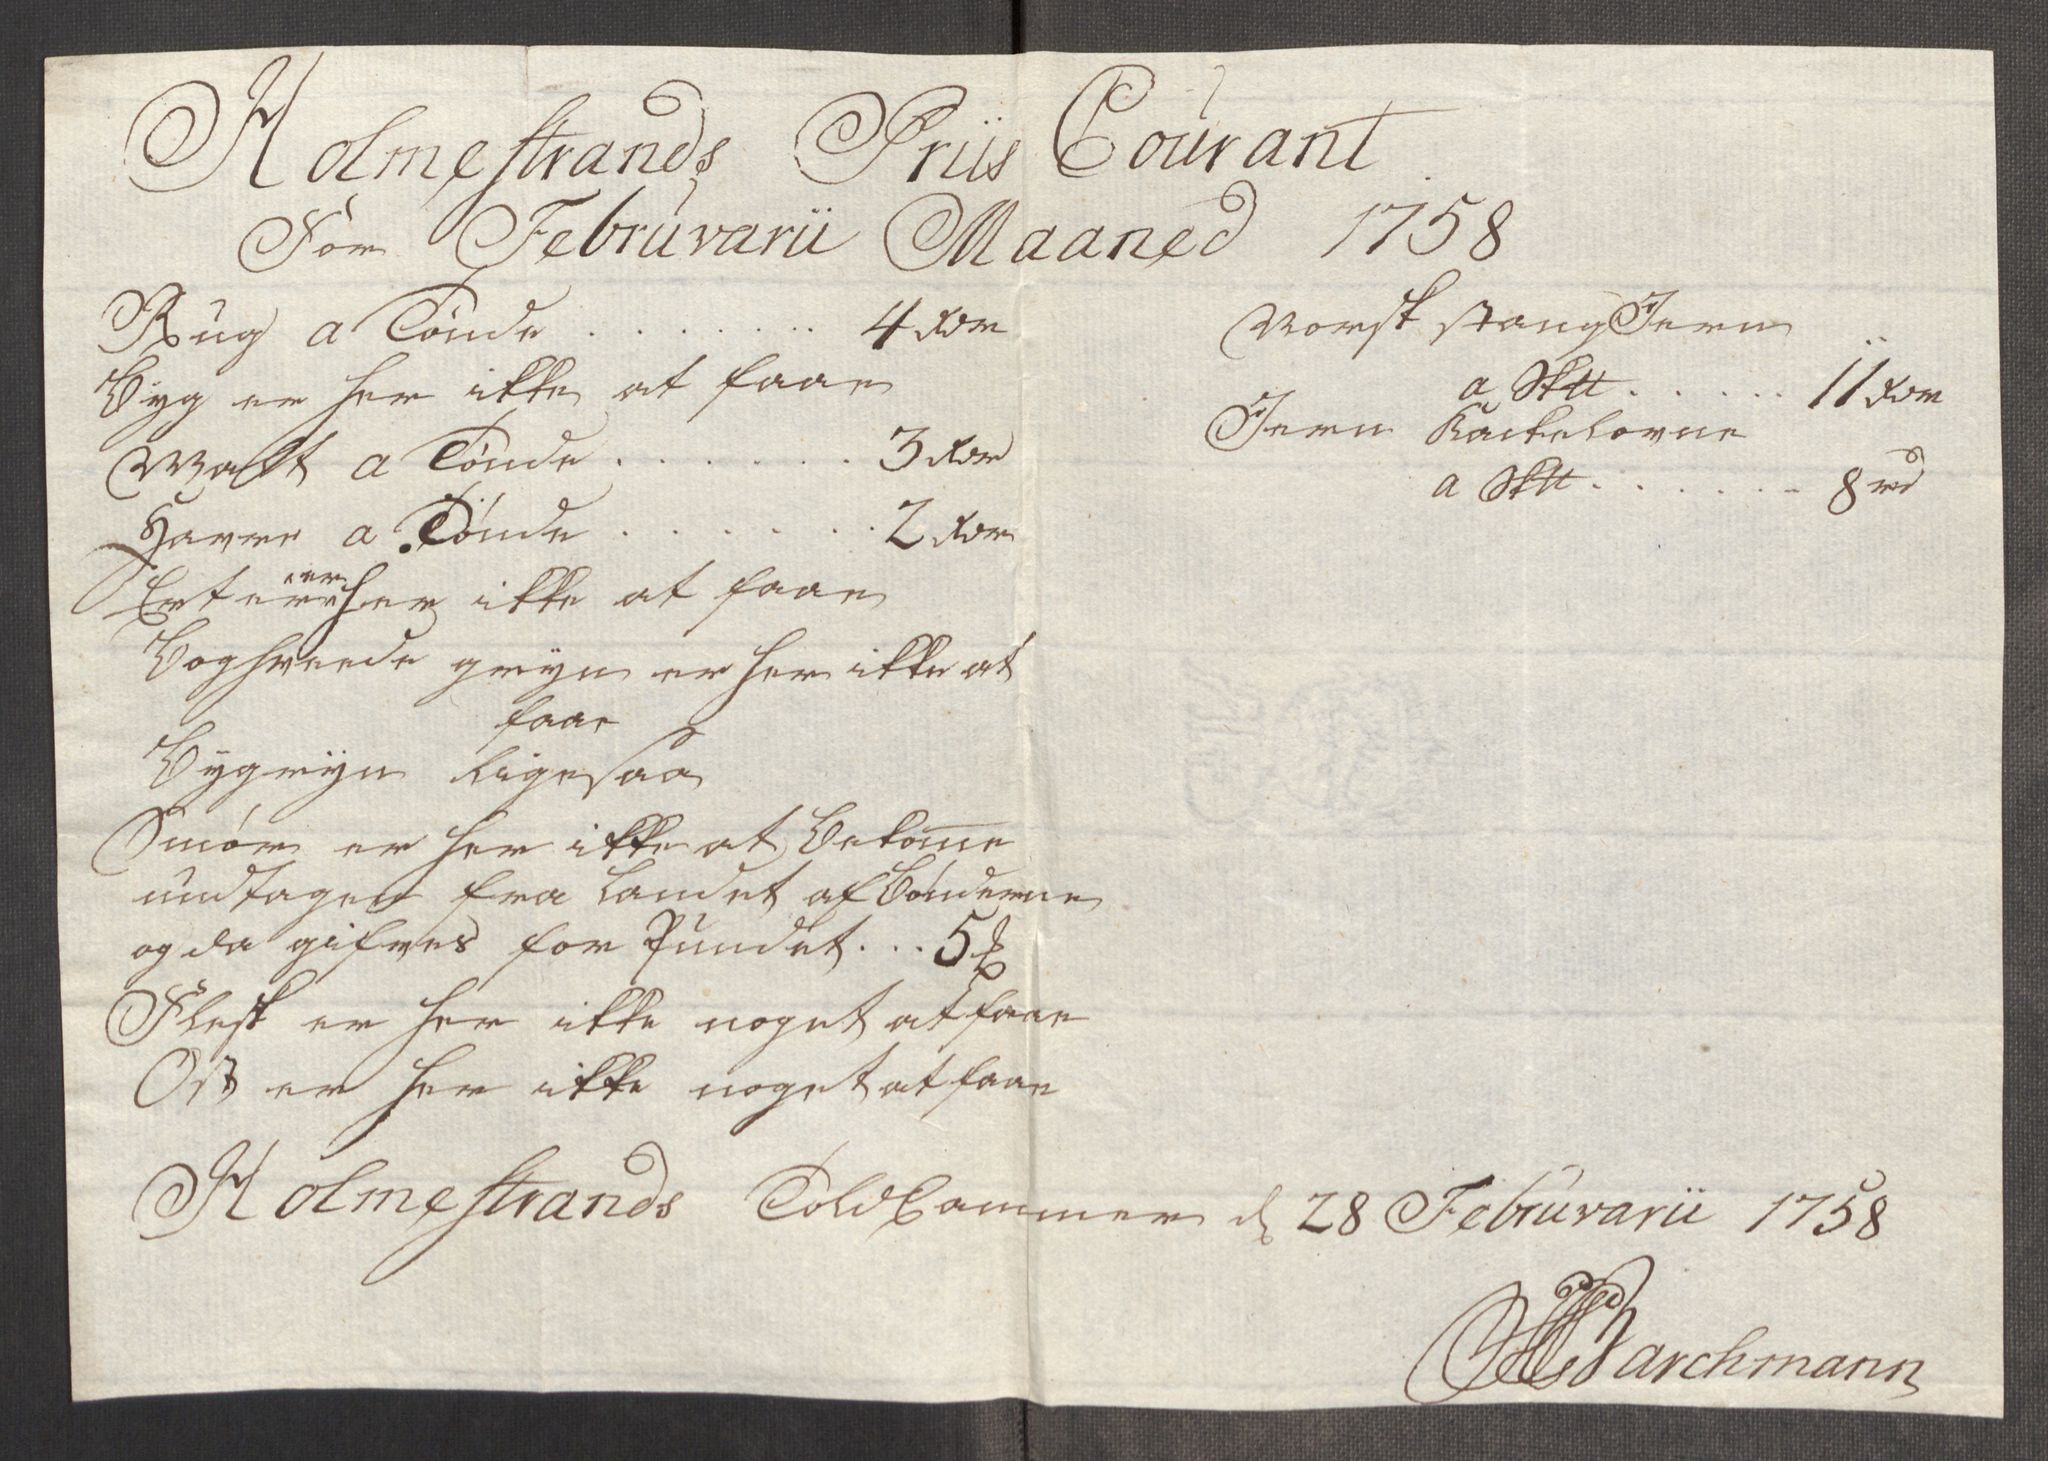 Holmestrands Priis Courant
For Februvarii Maaned 1758
Rug a Tönde . . . . . . . . 4 rdr
Byg er her ikke at faae
Malt a Tönde . . . . . . . 3 rdr
Havre a Tönde . . . . . . . 2 rdr
Erter er her ikke at faae
Boghveede gryn er her ikke at
faae
Bygryn ligesaa
Smör er her ikke at bekome
undtagen fra Landet af Bönderne
og da gifves for Pundet . . . 5
Flesk er her ikke noget at faae
Ost er her ikke noget at faae
Norsk stang Jern
a Sktt . . . . . . 11 rdr
Jern Kackelovne
a Sktt . . . . . . 8 rd
Holmestrands Told Cammer d 28 Februvarii 1758
Barchmann